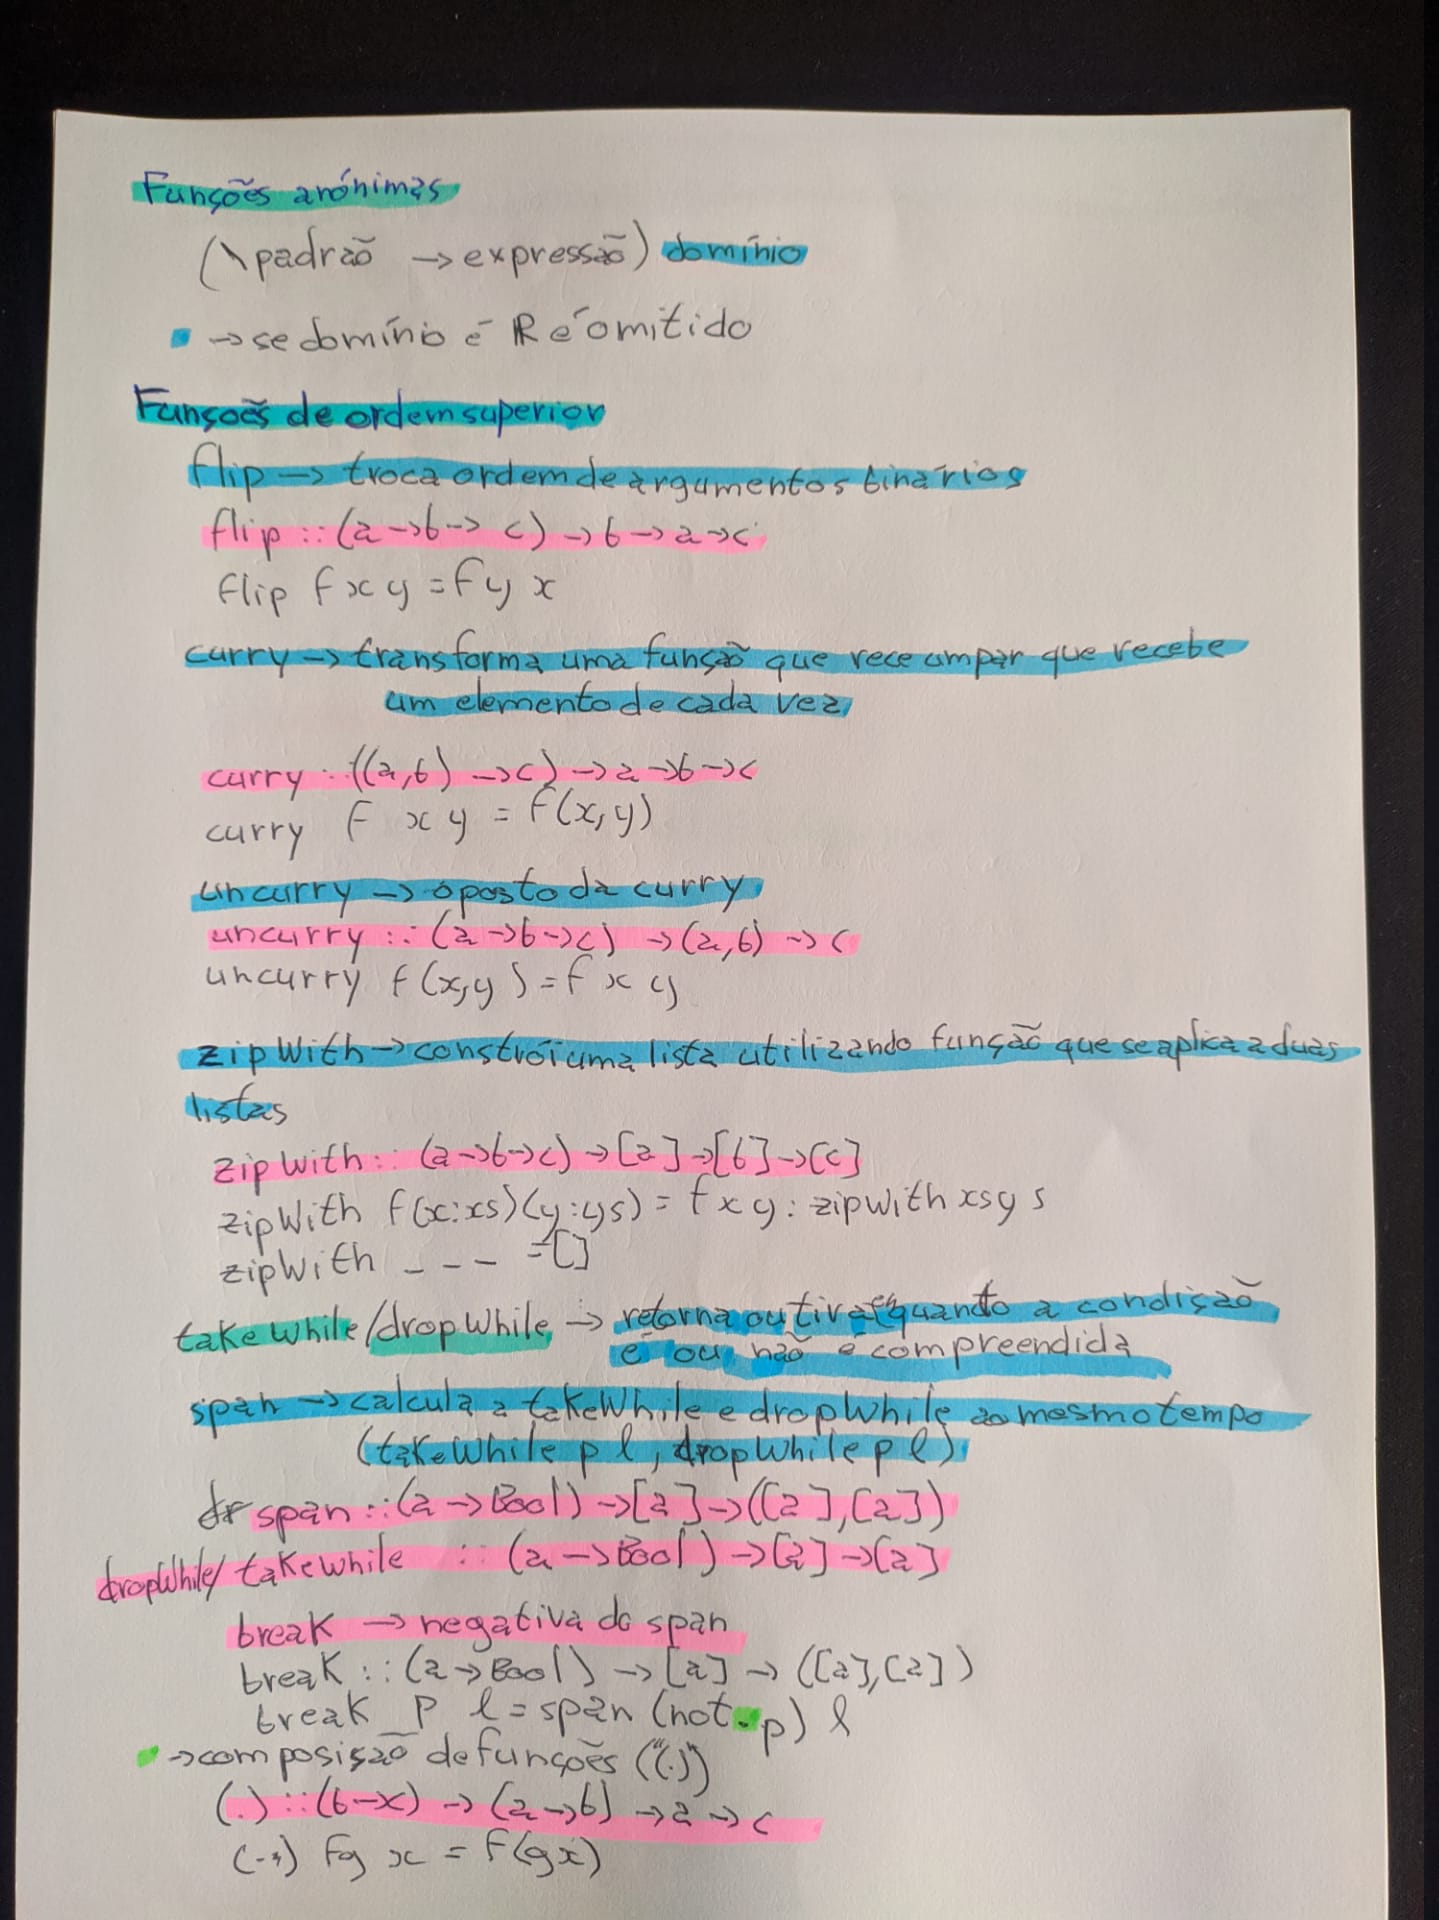 Funções anónimas
(\padrão → expressão) domínio
→ se domínio é ℝ é omitido
Funções de ordem superior
flip → troca ordem de argumentos binários
flip :: (a → b → c) → b → a → c
flip f x y = f y x
curry → transforma uma função que rece um par que recebe
um elemento de cada vez
curry : ((a,b) → c) → a → b → c
curry f x y = f(x,y)
uncurry → oposto da curry
uncurry :: (a → b → c) → (a,b) → c
uncurry f (x,y) = f x y
zipWith → constrói uma lista utilizando função que se aplica a duas
listas
zipWith :: (a → b → c) → [a] → [b] → [c]
zipWith f(x:xs)(y:ys) = f x y : zipWith xs ys
zipWith _ _ _ = []
takeWhile/dropWhile → retorna ou tira enquanto a condição
é ou não é compreendida
span → calcula a takeWhile e dropWhile ao mesmo tempo
(takeWhile p l, dropWhile p l)
span :: (a → Bool) → [a] → ([a],[a])
dropWhile/takewhile :: (a → Bool) → [a] → [a]
break → negativa do span
break :: (a → Bool) → [a] → ([a],[a])
break p l = span (not . p) l
→ composição de funções ("(.)")
(.) :: (b → c) → (a → b) → a → c
(.) f g x = f(g x)